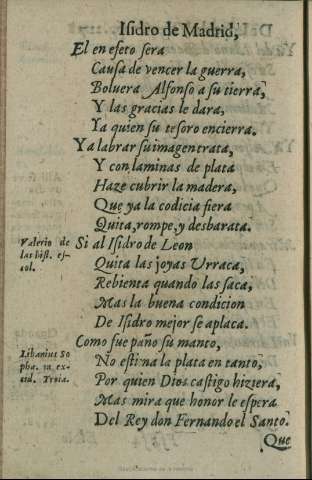 Isidro de Madrid,
El en efeto sera
Causa de vencer la guerra,
Boluera Alfonso a su tierra,
Y las gracias le dara,
Ya quien su tesoro encierra.
Ya labrar su imagen trata,
Y con laminas de plata
Haze cubrir la madera,
Que ya la codicia fiera
Quita, rompe, y desbarata.
Valerio de
las hist. es
col.
Si al Isidro de Leon
Quita las joyas Urraca,
Rebienta quando las saca,
Mas la buena condicion
De Isidro mejor se aplaca.
Libanius So
pha. in ex-
cid. Troia.
Como fue paño su manto,
No estima la plata en tanto,
Por quien Dios castigo hiziera,
Mas mira que honor le espera
Del Rey don Fernando el Santo.
Que